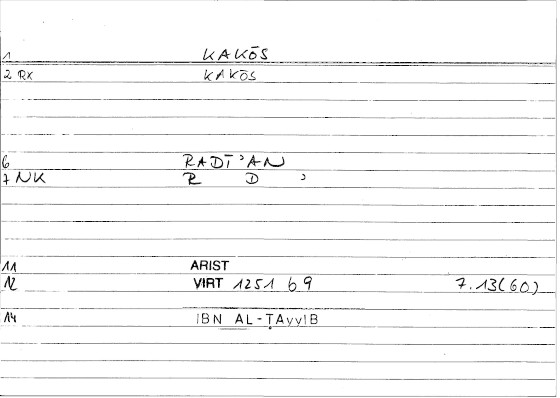 1 KAKŌS
2 RX KAKŌS
6 RADĪʾAN
7 NK R D ʾ
11 ARIST
12 VIRT 1251 b9 7.13(60)
14 IBN AL-ṬAyyIB